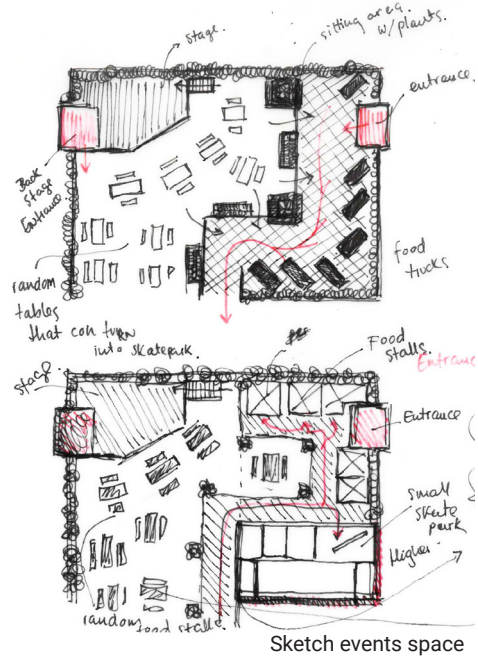 stage.
sitting area
w/ plants.
entrance.
Back
stage
Entrance
food
trucks
random
tables
that can turn
into skatepark.
stage.
Food
stalls.
Entrance
Entrance
small
skate
park
Higher
random
food stalls
Sketch events space